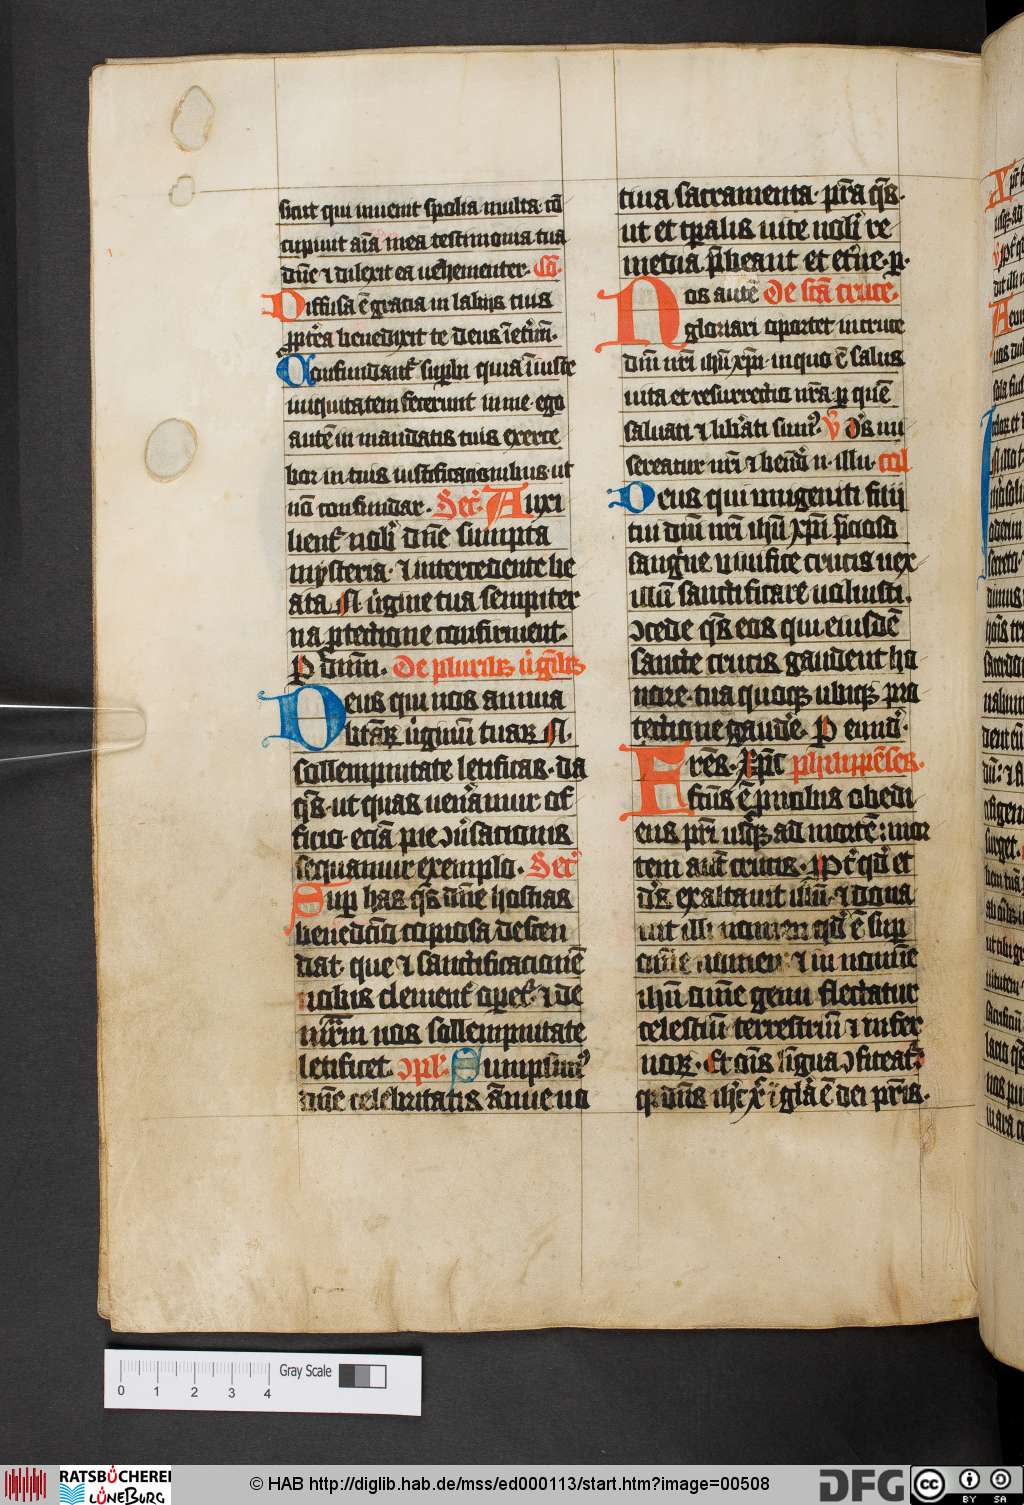 sicut qui invenit spolia multa cō
cupivit aīa mea testimonia tua
dn̄e ⁊ dilexit ea vehementer. Cō.
Diffusa ē gracia in labijs tuis
ppt̄ea benedixit te deus ī et̄nū.
Confundant᷑ supbi quia īiuste
iniquitatem fecerunt in me ego
autē in mandatis tuis exerce
bor in tuis iustificacionibus ut
nō confundar. Secr̄. Auxi
lient᷑ nobī dn̄e sumpta
mysteria. ⁊ intercedente be
ata .N. v̄gine tua sempiter
na ptectione confirment.
P dn̄m. De pluribꝫ v̄gībꝫ
Deus qui nos annua
btārꝝ v̄ginū tuarꝝ .N.
sollempnitate letificas. da
qs̄. ut quas venāmur of
ficio. eciā pie ꝯv̄sacionis
sequamur exemplo. Secr̄
Sup has qs̄ dn̄e hostias
benedc̄o copiosa descen
dat. que ⁊ sanctificacionē
nobis clement᷑ opet᷑. ⁊ de
mr̄m nos sollempnitate
letificet. ꝯpl̄. Sumpsim᷒
dn̄e celebritatis ānue vo
tiva sacramenta. pr̄a qs̄.
ut et tp̄alis vite nobī re
media p̄beant et et̄ne. p.
Nos autē De scā cruce.
gloriari oportet in cruce
dn̄i nr̄i ihū xp̄i. in quo ē salus
vita et resurrectio nr̄a. p quē
salvati ⁊ lib̄ati sum᷒. v̄ Ds̄ mi
sereatur nr̄i ⁊ bend̄ n. illu. col
Deus qui unigeniti filij
tui dn̄i nr̄i ihū xp̄i p̄cioso
sangv̄ne vivifice crucis vex
illū sanctificare voluisti.
ꝯcede qs̄ eos qui eiusdē
sancte crucis gaudent ho
nore. tua quoqꝫ ubiqꝫ pro
tectione gaud̄e. P eund̄.
Fres̄. Xp̄c philippēses.
fctūs ē p nobis obedi
ens pr̄i usqꝫ ad mortē: mor
tem aut̄ crucis. Ppt̄ qd̄ et
ds̄ exaltavit illū. ⁊ dona
vit illi nomen qd̄ ē sup
om̄e nomen. ⁊ in nomīe
ihū om̄e genu flectatur
celestiū terrestriū ⁊ infer
norꝝ. Et om̄s līgua ꝯfiteat᷑
qꝛ dn̄s ihc̄ xc̄ ī glā ē dei pr̄is.
0 1 2 3 4
Gray Scale
RATSBÜCHEREI
LÜNEBURG
© HAB http://diglib.hab.de/mss/ed000113/start.htm?image=00508
DFG
cc
BY SA